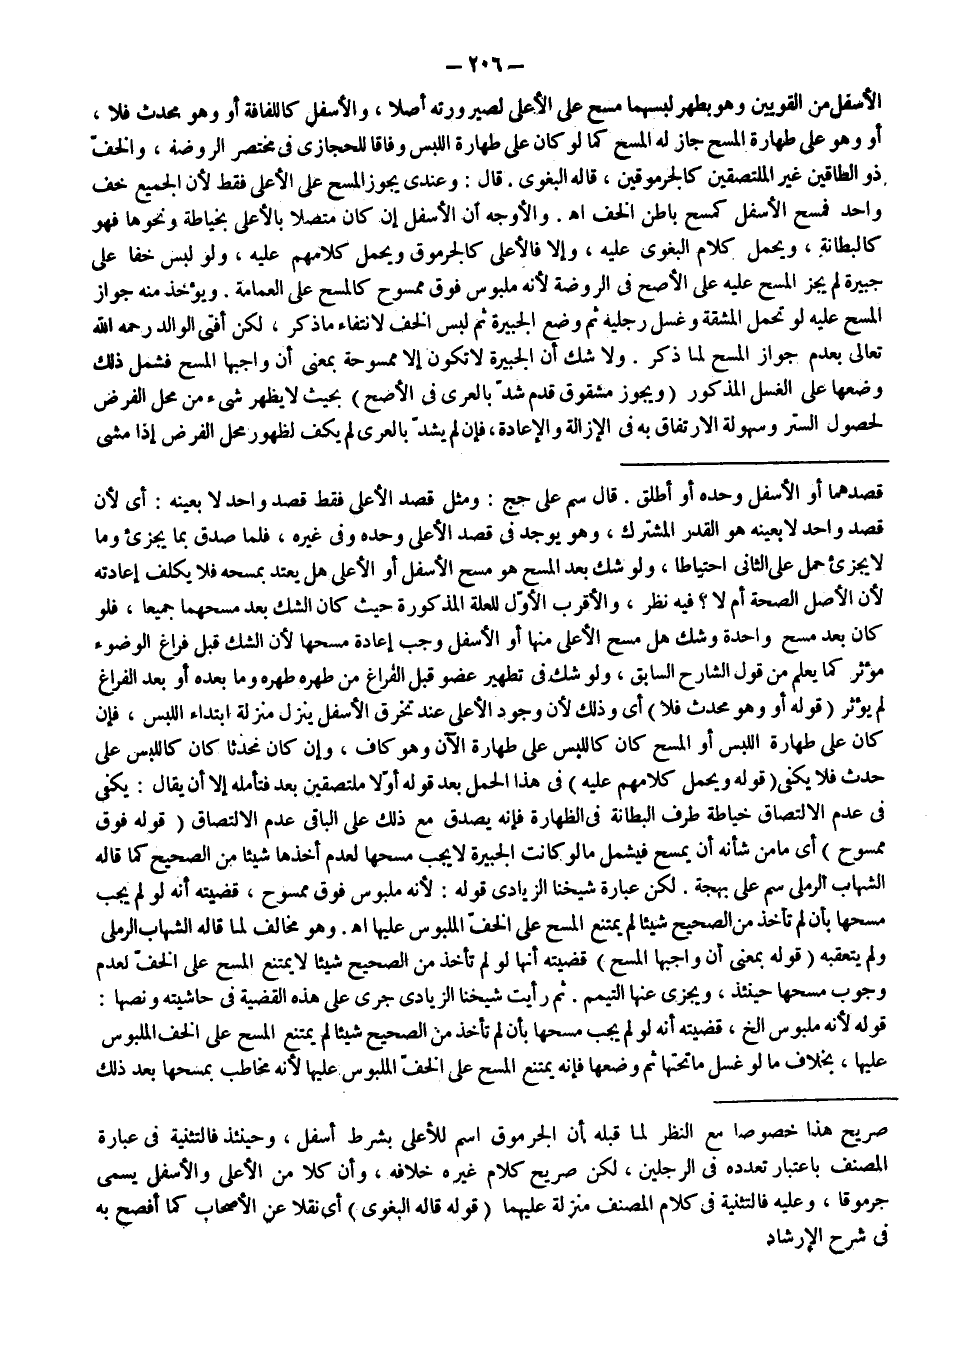 — ٢٠٦ —
الأسفل من القويين وهو بطهر لبسهما مسح على الأعلى لصيرورته أصلا ، والأسفل كاللفافة أو وهو محدث فلا ،
أو وهو على طهارة المسح جاز له المسح كما لو كان على طهارة اللبس وفاقا للحجازى فى مختصر الروضة ، والخفّ
ذو الطاقين غير الملتصقين كالجرموقين ، قاله البغوى . قال : وعندى يجوز المسح على الأعلى فقط لأن الجميع خف
واحد فمسح الأسفل كمسح باطن الخف اه . والأوجه أن الأسفل إن كان متصلا بالأعلى بخياطة ونحوها فهو
كالبطانة ، ويحمل كلام البغوى عليه ، وإلا فالأعلى كالجرموق ويحمل كلامهم عليه ، ولو لبس خفا على
جبيرة لم يجز المسح عليه على الأصح فى الروضة لأنه ملبوس فوق ممسوح كالمسح على العمامة . ويؤخذ منه جواز
المسح عليه لو تحمل المشقة وغسل رجليه ثم وضع الجبيرة ثم لبس الخف لانتفاء ماذكر ، لكن أفتى الوالد رحمه الله
تعالى بعدم جواز المسح لما ذكر . ولا شك أن الجبيرة لاتكون إلا ممسوحة بمعنى أن واجبها المسح فشمل ذلك
وضعها على الغسل المذكور ( ويجوز مشقوق قدم شدّ بالعرى فى الأصح ) بحيث لايظهر شىء من محل الفرض
لحصول الستر وسهولة الارتفاق به فى الإزالة والإعادة ، فإن لم يشدّ بالعرى لم يكف لظهور محل الفرض إذا مشى
قصدهما أو الأسفل وحده أو أطلق . قال سم على حج : ومثل قصد الأعلى فقط قصد واحد لا بعينه : أى لأن
قصد واحد لابعينه هو القدر المشترك ، وهو يوجد فى قصد الأعلى وحده وفى غيره ، فلما صدق بما يجزئ وما
لايجزئ حمل على الثانى احتياطا ، ولو شك بعد المسح هو مسح الأسفل أو الأعلى هل يعتد بمسحه فلا يكلف إعادته
لأن الأصل الصحة أم لا ؟ فيه نظر ، والأقرب الأوّل للعلة المذكورة حيث كان الشك بعد مسحهما جميعا ، فلو
كان بعد مسح واحدة وشك هل مسح الأعلى منها أو الأسفل وجب إعادة مسحها لأن الشك قبل فراغ الوضوء
مؤثر كما يعلم من قول الشارح السابق ، ولو شك فى تطهير عضو قبل الفراغ من طهره طهره وما بعده أو بعد الفراغ
لم يؤثر ( قوله أو وهو محدث فلا ) أى وذلك لأن وجود الأعلى عند تخرق الأسفل ينزل منزلة ابتداء اللبس ، فإن
كان على طهارة اللبس أو المسح كان كاللبس على طهارة الآن وهو كاف ، وإن كان محدثا كان كاللبس على
حدث فلا يكفى ( قوله ويحمل كلامهم عليه ) فى هذا الحمل بعد قوله أوّلا ملتصقين بعد فتأمله إلا أن يقال : يكفى
فى عدم الالتصاق خياطة طرف البطانة فى الظهارة فإنه يصدق مع ذلك على الباقى عدم الالتصاق ( قوله فوق
ممسوح ) أى مامن شأنه أن يمسح فيشمل مالو كانت الجبيرة لايجب مسحها لعدم أخذها شيئا من الصحيح كما قاله
الشهاب الرملى سم على بهجة . لكن عبارة شيخنا الزيادى قوله : لأنه ملبوس فوق ممسوح ، قضيته أنه لو لم يجب
مسحها بأن لم تأخذ من الصحيح شيئا لم يمتنع المسح على الخفّ الملبوس عليها اه . وهو مخالف لما قاله الشهاب الرملى
ولم يتعقبه ( قوله بمعنى أن واجبها المسح ) قضيته أنها لو لم تأخذ من الصحيح شيئا لايمتنع المسح على الخفّ لعدم
وجوب مسحها حينئذ ، ويجزى عنها التيمم . ثم رأيت شيخنا الزيادى جرى على هذه القضية فى حاشيته ونصها :
قوله لأنه ملبوس الخ ، قضيته أنه لو لم يجب مسحها بأن لم تأخذ من الصحيح شيئا لم يمتنع المسح على الخف الملبوس
عليها ، بخلاف ما لو غسل ماتحتها ثم وضعها فإنه يمتنع المسح على الخفّ الملبوس عليها لأنه مخاطب بمسحها بعد ذلك
صريح هذا خصوصا مع النظر لما قبله أن الجرموق اسم للأعلى بشرط أسفل ، وحينئذ فالتثنية فى عبارة
المصنف باعتبار تعدده فى الرجلين ، لكن صريح كلام غيره خلافه ، وأن كلا من الأعلى والأسفل يسمى
جرموقا ، وعليه فالتثنية فى كلام المصنف منزلة عليهما ( قوله قاله البغوى ) أى نقلا عن الأصحاب كما أفصح به
فى شرح الإرشاد